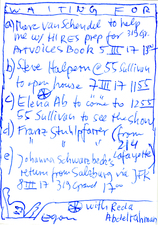 WAITING FOR
a) Pierre Van Schendel to help
me w/ HIRES prep for
Artvoices Book 5 III 17
b) Steve Halpern @ 55 Sullivan
to open house 7 III 17 1155
c) Elena Ab to come to 1255
55 Sullivan to see the show
d) Franz Stuhlpfarrer (from
214
Lafayette)
e) Johanna Schwarzbeck's
return from Salzburg via JFK
8 III 17 319 Grand 17
with Reda
Abdelrahman